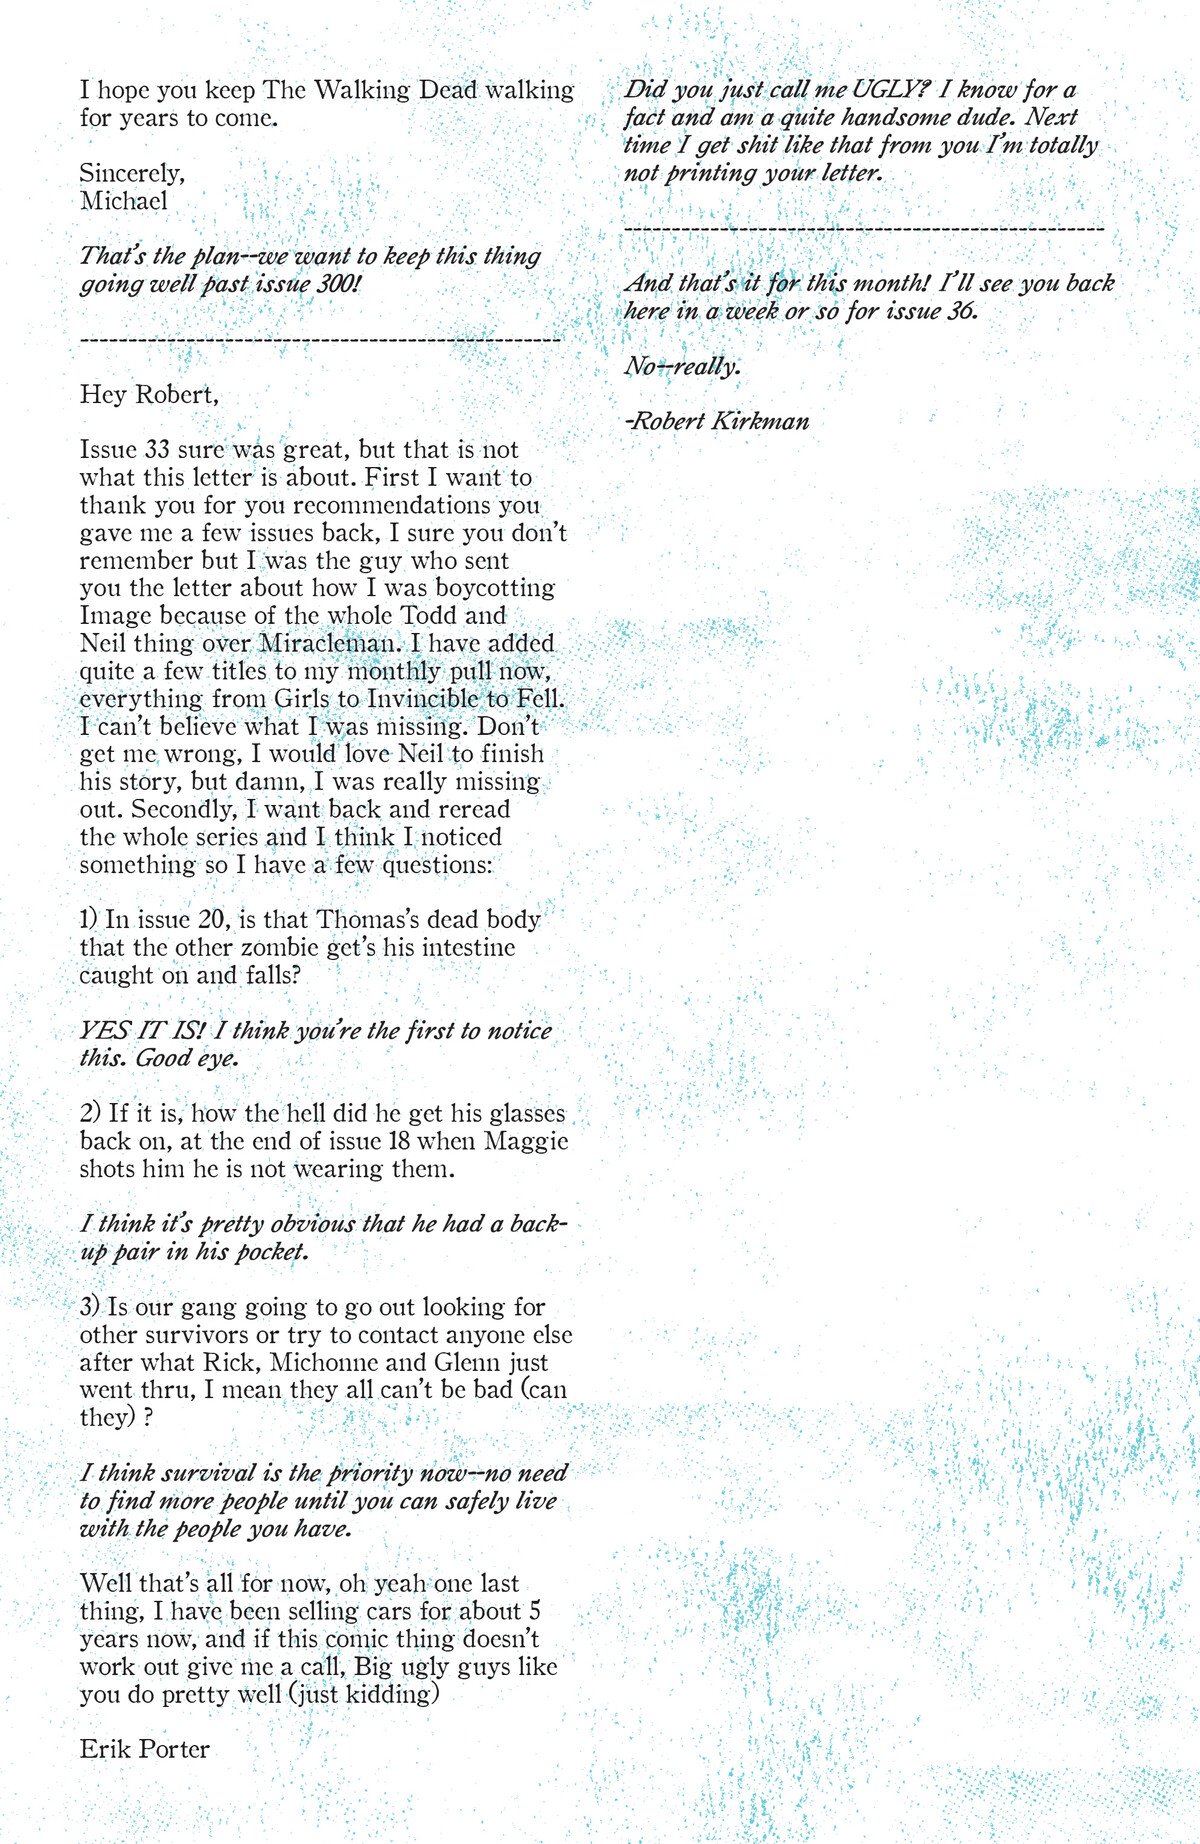 I hope you keep The Walking Dead walking
for years to come.
Sincerely,
Michael
That's the plan--we want to keep this thing
going well past issue 300!
--------------------------------------------------
Hey Robert,
Issue 33 sure was great, but that is not
what this letter is about. First I want to
thank you for you recommendations you
gave me a few issues back, I sure you don't
remember but I was the guy who sent
you the letter about how I was boycotting
Image because of the whole Todd and
Neil thing over Miracleman. I have added
quite a few titles to my monthly pull now,
everything from Girls to Invincible to Fell.
I can't believe what I was missing. Don't
get me wrong, I would love Neil to finish
his story, but damn, I was really missing
out. Secondly, I want back and reread
the whole series and I think I noticed
something so I have a few questions:
1) In issue 20, is that Thomas's dead body
that the other zombie get's his intestine
caught on and falls?
YES IT IS! I think you're the first to notice
this. Good eye.
2) If it is, how the hell did he get his glasses
back on, at the end of issue 18 when Maggie
shots him he is not wearing them.
I think it's pretty obvious that he had a back-
up pair in his pocket.
3) Is our gang going to go out looking for
other survivors or try to contact anyone else
after what Rick, Michonne and Glenn just
went thru, I mean they all can't be bad (can
they) ?
I think survival is the priority now--no need
to find more people until you can safely live
with the people you have.
Well that's all for now, oh yeah one last
thing, I have been selling cars for about 5
years now, and if this comic thing doesn't
work out give me a call, Big ugly guys like
you do pretty well (just kidding)
Erik Porter
Did you just call me UGLY? I know for a
fact and am a quite handsome dude. Next
time I get shit like that from you I'm totally
not printing your letter.
--------------------------------------------------
And that's it for this month! I'll see you back
here in a week or so for issue 36.
No--really.
-Robert Kirkman